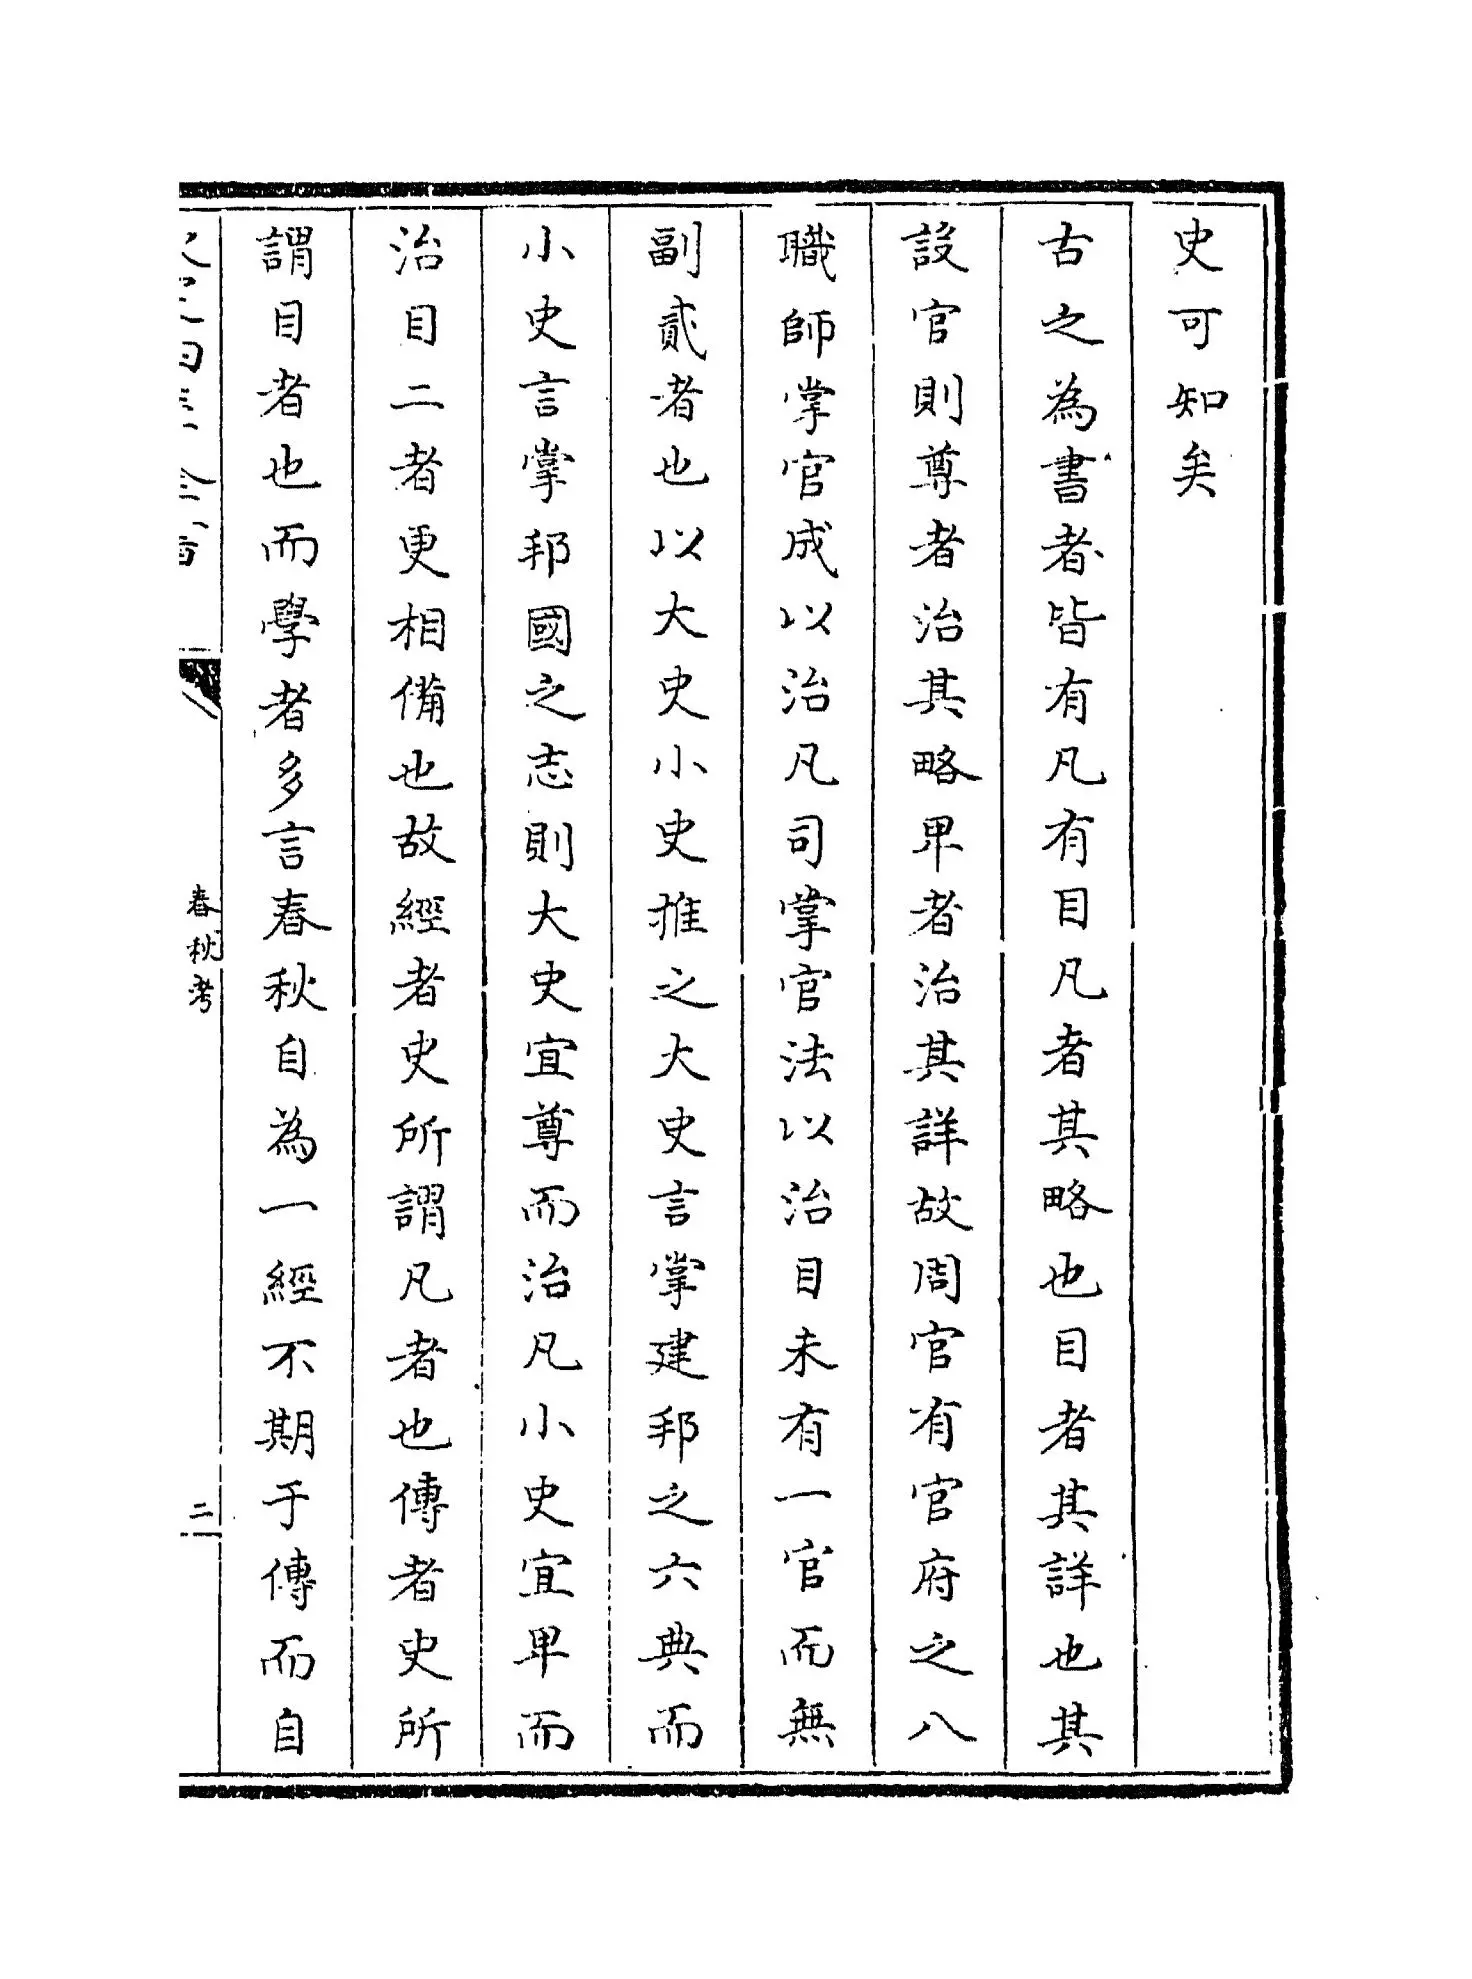 史可知矣
古之為書者皆有凡有目凡者其略也目者其詳也其
設官則尊者治其略卑者治其詳故周官有官府之八
職師掌官成以治凡司掌官法以治目未有一官而無
副貳者也以大史小史推之大史言掌建邦之六典而
小史言掌邦國之志則大史宜尊而治凡小史宜卑而
治目二者更相備也故經者史所謂凡者也傳者史所
謂目者也而學者多言春秋自為一經不期于傳而自
春秋考
二